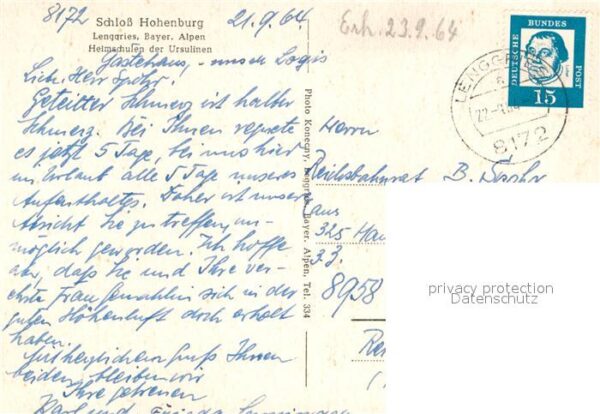 8172 Schloß Hohenburg 21.9.64
Lenggries, Bayer. Alpen
Heimschulen der Ursulinen
Gästehaus, - unser Logis
Lieber Herr
Geteilter Schmerz ist halber
Schmerz. Bei Ihnen regnete
es jetzt 5 Tage, bei uns hier
im Urlaub alle 5 Tage unseres
Aufenthaltes. Daher ist unsere
Absicht Sie zu treffen, un-
möglich geworden. Ich hoffe
aber, daß Sie und Ihre ver-
ehrte Frau Gemahlin sich in der
guten Höhenluft doch erholt
haben.
Mit herzlichem Gruß Ihnen
beiden, bleiben wir
Ihre getreuen
Karl und Frieda
Photo Konecny, Lenggries, Bayer. Alpen, Tel. 334
Erh. 23.9.64
DEUTSCHE BUNDES POST
15
LENGGRIES
8172
Herrn
Reichsbahnrat B.
aus
325
z.Zt.
8958
privacy protection
Datenschutz